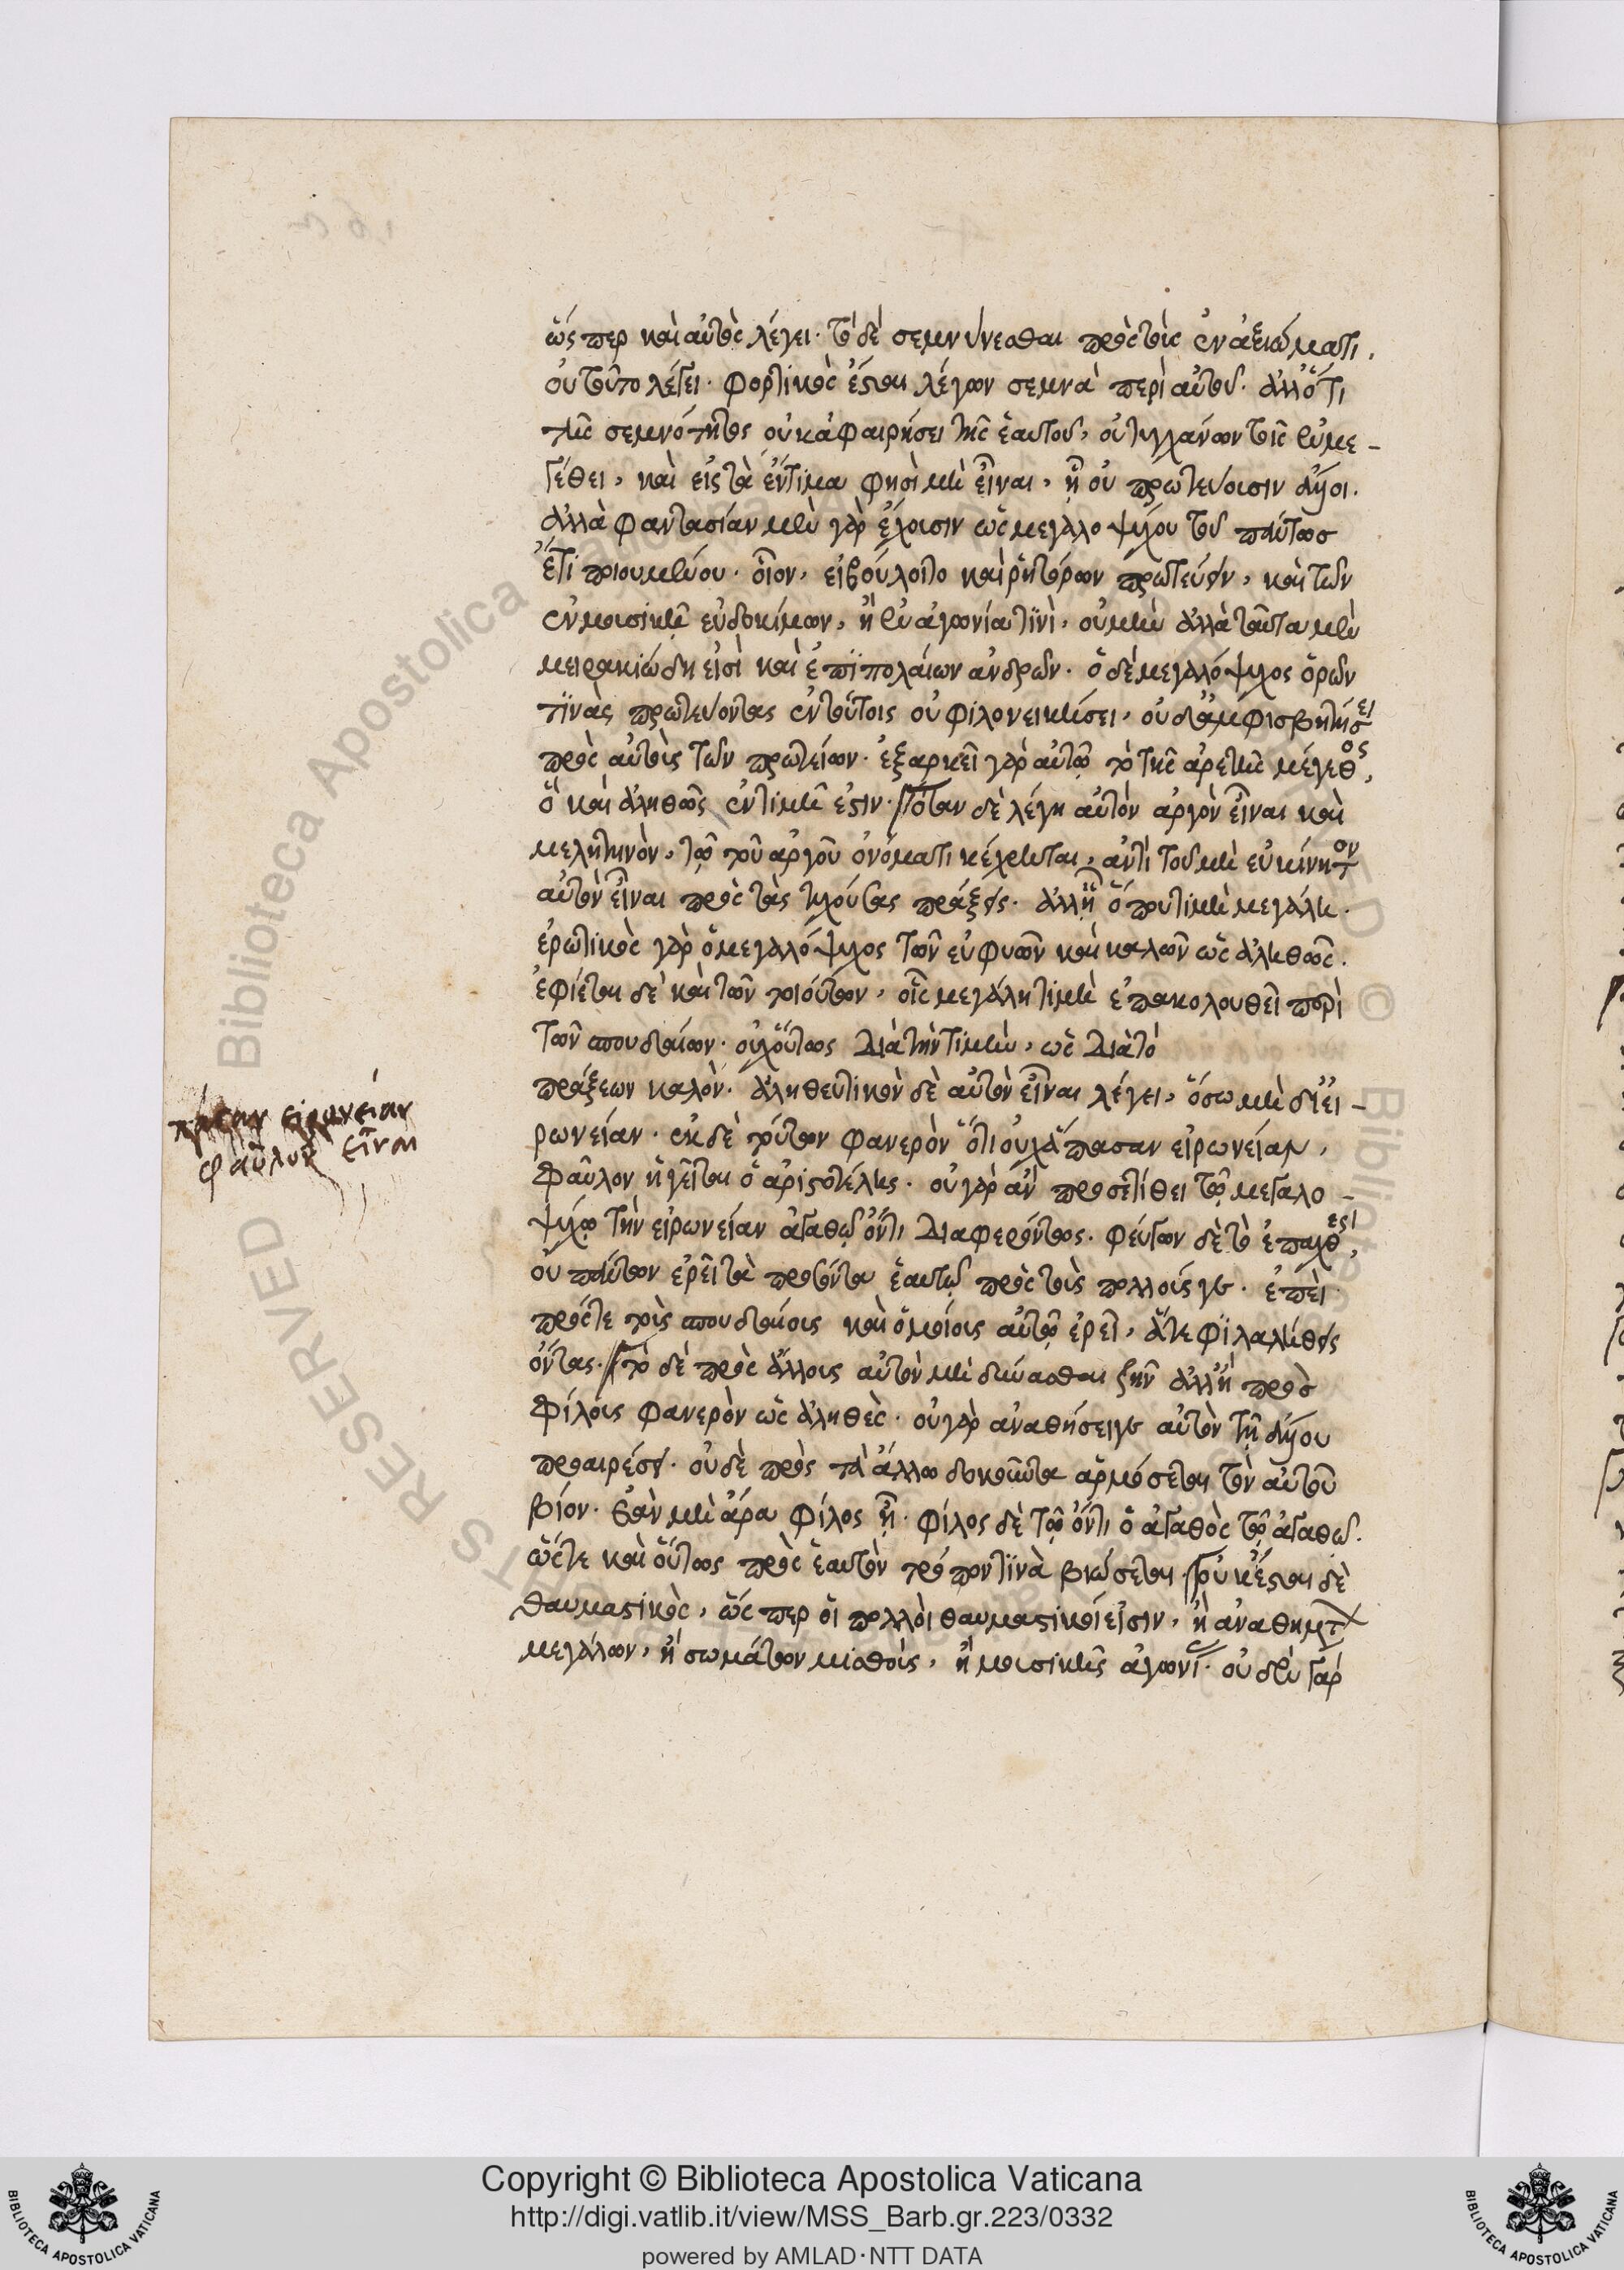 ὥς περ καὶ αὐτὸς λέγει· τὸ δὲ σεμνύνεσθαι πρὸς τοὺς ἐν ἀξιώματι,
οὐ τοῦτο λέγει· φορτικὸς ἔσται λέγων σεμνὰ περὶ αὐτοῦ· ἀλλ' ὅτι
τῆς σεμνότητος οὐκ ἀφαιρήσει τῆς ἑαυτοῦ, ἐντυγχάνων τοῖς ἐν με-
γέθει, καὶ εἰς τὰ ἔντιμα φησὶ μὴ εἶναι, ἢ οὗ πρωτεύουσιν ἄλλοι.
ἀλλὰ φαντασίαν μὲν γὰρ ἔχουσιν ὡς μεγαλοψύχου τοῦ πάντως
ὅτι προτιμωμένου· οἷον, εἰ βούλοιτο καὶ ῥητόρων πρωτεύειν, καὶ τῶν
ἐν μουσικῇ εὐδοκίμων, ἢ ἐν ἀγωνία τινὶ, οὐ μὴν ἀλλὰ ταῦτα μὲν
μειρακιώδη εἰσὶ καὶ ἐπϊπολαίων ἀνδρῶν. ὁ δὲ μεγαλόψυχος ὁρῶν
τϊνὰς πρωτεύοντας ἐν τούτοις οὐ φιλονεικήσει, οὐδ' ἀμφισβητήσει
πρὸς αὐτοὺς τῶν πρωτείων· ἐξαρκεῖ γὰρ αὐτῷ τὸ τῆς ἀρετῆς μέγεθος,
ὃ καὶ ἀληθῶς ἐν τιμῇ ἐστιν· ὅταν δὲ λέγη αὐτὸν ἀργὸν εἶναι καὶ
μελητηνὸν, τῷ τοῦ ἀργοῦ ὀνόματι κέχρηται, ἀντὶ τοῦ μὴ εὐκίνητον
αὐτὸν εἶναι πρὸς τὰς τυχούσας πράξεις. ἀλλ' ἢ ὅπου τιμὴ μεγάλη.
ἐρωτικὸς γὰρ ὁ μεγαλόψυχος τῶν εὐφυῶν καὶ καλῶν ὡς ἀληθῶς.
ἐφίεται δὲ καὶ τῶν τοιούτων, οἷς μεγάλη τιμὴ ἐπακολουθεῖ παρὰ
τῶν σπουδαίων· οὐχ οὕτως διὰ τὴν τιμὴν, ὡς διὰ τὸ
πράξεων καλὸν. ἀληθευτικὸν δὲ αὐτὸν εἶναι λέγει, ὅσω μὴ δι' εἰ-
ρωνείαν· ἐκ δὲ τούτων φανερὸν ὅτι οὐχ ἅπασαν εἰρωνείαν,
φαῦλον ἡγεῖται ὁ ἀριστοτέλης. οὐ γὰρ ἂν προσετίθει τῷ μεγαλο-
ψύχῳ τὴν εἰρωνείαν ἀγαθῷ ὄντι διαφερόντως. φεύγων δὲ τὸ ἐπαχθὲς,
οὐ πάντων ἐρεῖ τὰ προσόντα ἑαυτῷ πρὸς τοὺς πολλούς γε. ἐπεὶ
πρός τε τοὺς σπουδαίους καὶ ὁμοίους αὐτῷ ἐρεῖ, ἅτε φϊλαλήθεις
ὄντας. τὸ δὲ πρὸς ἄλλους αὐτὸν μὴ δύνασθαι ζῆν ἀλλ' ἢ πρὸς
φίλους φανερὸν ὡς ἀληθὲς. οὐ γὰρ ἀναθήσει γε αὐτὸν τῇ ἄλλου
προαιρέσει. οὐδὲ πρὸς τὰ ἄλλω δοκοῦντα ἁρμόσεται τὸν αὐτοῦ
βίον. ἐὰν μὴ ἄρα φίλος ᾖ. φίλος δὲ τῷ ὄντι ὁ ἀγαθὸς τῷ ἀγαθῷ.
ὥστε καὶ οὕτως πρὸς ἑαυτὸν τρόπον τϊνὰ βιώσεται. οὐκ ἔσται δὲ
θαυμαστικὸς, ὥς περ οἱ πολλοὶ θαυμαστικοί εἰσιν, ἢ ἀναθημάτων
μεγάλων, ἢ σωμάτων μισθοὺς, ἢ μουσικῆς ἀγωνί. οὐδὲν γὰρ
πᾶσαν εἰρωνείαν
φαῦλον εἶναι
Copyright © Biblioteca Apostolica Vaticana
http://digi.vatlib.it/view/MSS_Barb.gr.223/0332
powered by AMLAD·NTT DATA